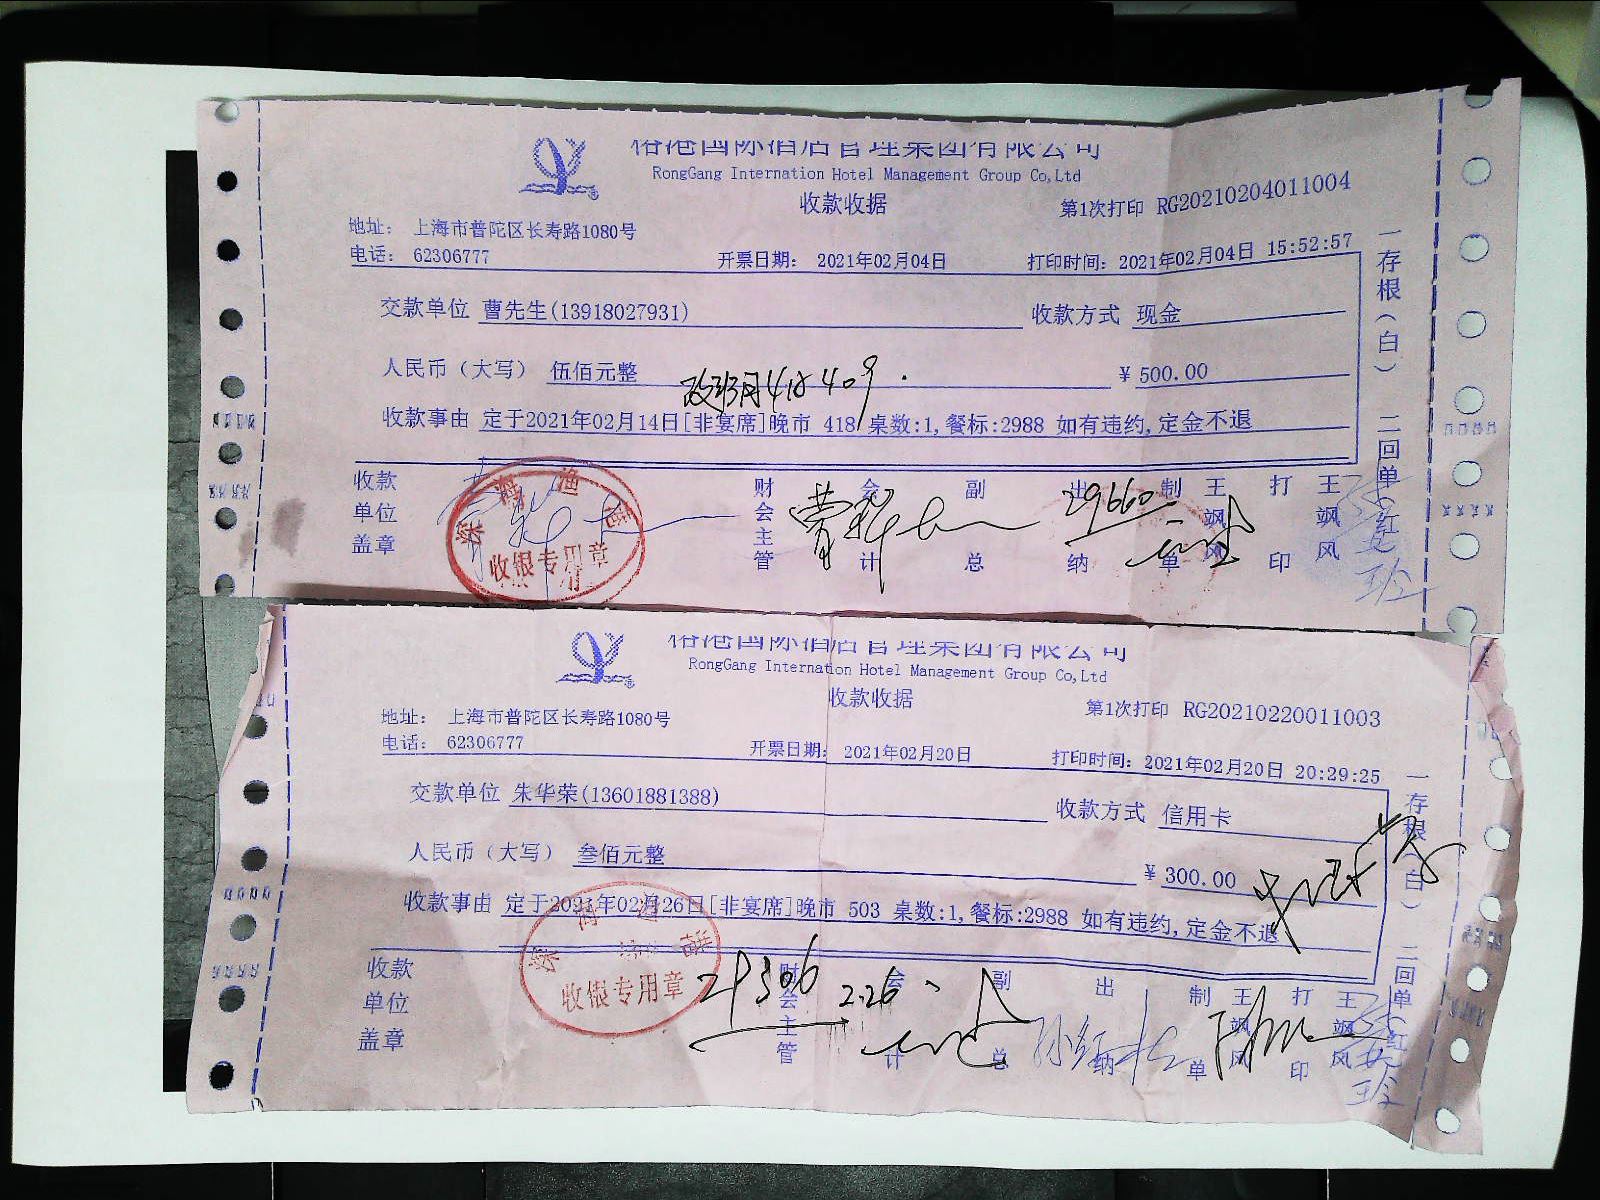 榕港国际酒店管理集团有限公司
RongGang Internation Hotel Management Group Co,Ltd
收款收据
第1次打印 RG20210204011004
地址： 上海市普陀区长寿路1080号
电话： 62306777
开票日期： 2021年02月04日
打印时间：2021年02月04日 15:52:57
交款单位 曹先生(13918027931)
收款方式 现金
人民币（大写） 伍佰元整
¥ 500.00
收款事由 定于2021年02月14日[非宴席]晚市 418 桌数:1,餐标:2988 如有违约,定金不退
收款单位盖章
财会主管
会计
副总
出纳
制单
王飒风
打印
王飒风
一存根（白） 二回单（红）
收银专用章
29660
榕港国际酒店管理集团有限公司
RongGang Internation Hotel Management Group Co,Ltd
收款收据
第1次打印 RG20210220011003
地址： 上海市普陀区长寿路1080号
电话： 62306777
开票日期： 2021年02月20日
打印时间：2021年02月20日 20:29:25
交款单位 朱华荣(13601881388)
收款方式 信用卡
人民币（大写） 叁佰元整
¥ 300.00
收款事由 定于2021年02月26日[非宴席]晚市 503 桌数:1,餐标:2988 如有违约,定金不退
收款单位盖章
财会主管
会计
副总
出纳
制单
王飒风
打印
王飒风
一存根（白） 二回单（红）
收银专用章
2.26